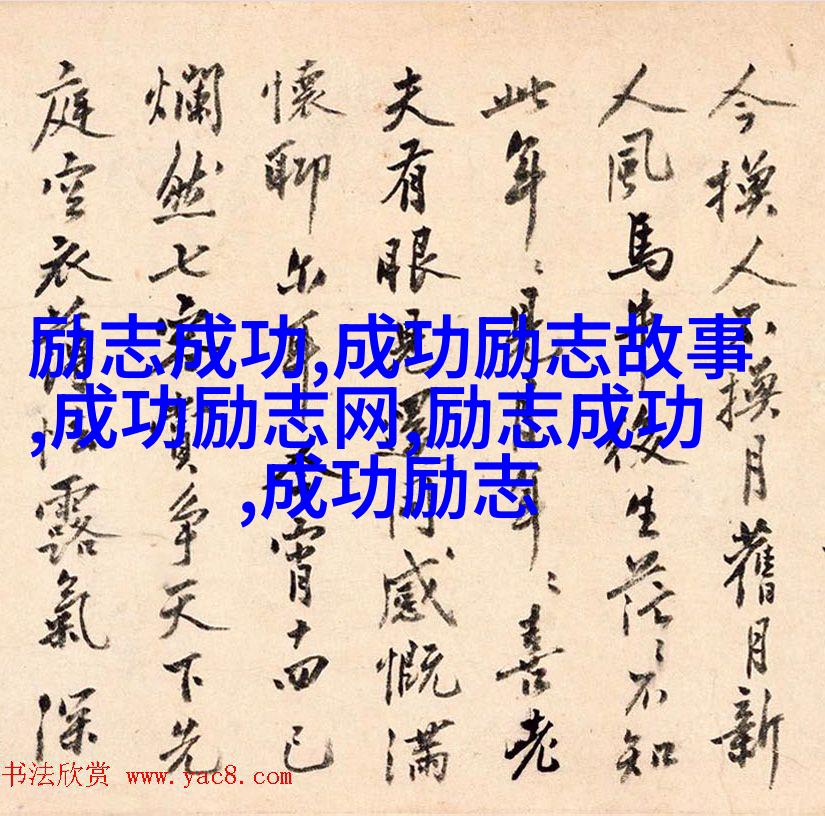 今換人不換月舊月新
人風馬牛後生茫〻不知
此年〻見年〻喜老
夫有眼感慨滿
懷聊尔宵十四已
爛然七寶爭天下先
庭空衣薄怯露氣深
励志成功,成功励志故事
,成功励志网,励志成功
,成功励志
书法欣赏 www.yac8.com